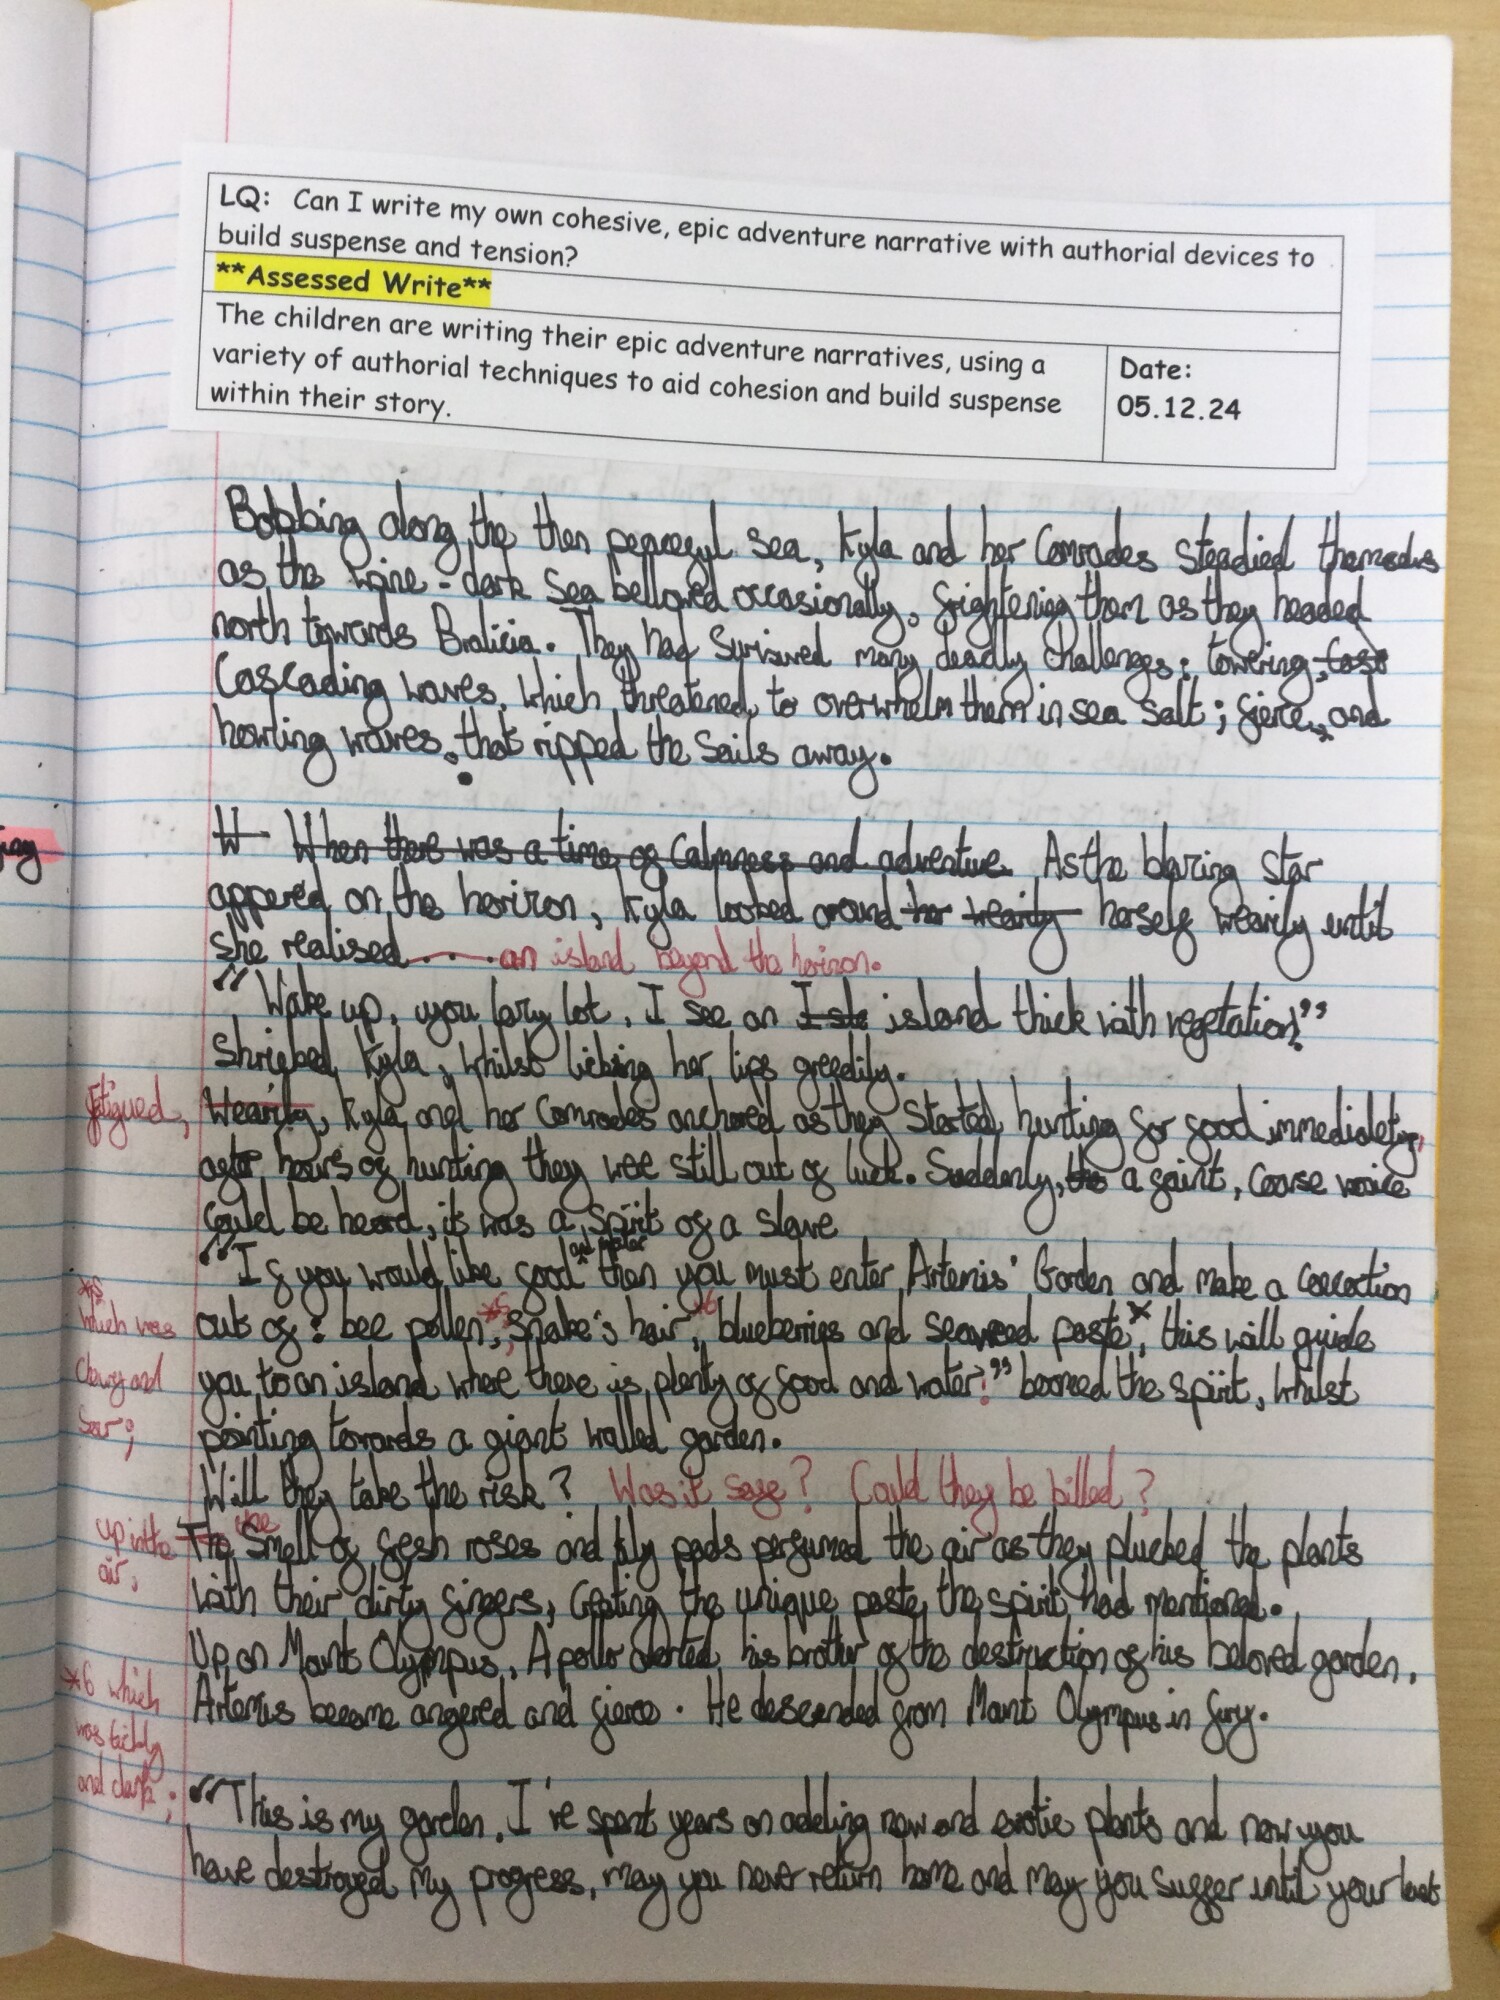 LQ: Can I write my own cohesive, epic adventure narrative with authorial devices to
build suspense and tension?
**Assessed Write**
The children are writing their epic adventure narratives, using a
variety of authorial techniques to aid cohesion and build suspense
within their story.
Date:
05.12.24
Bobbing along the then peacegul sea, Kyla and her Comrades Steadied themselves
as the wine-dark Sea bellowed occasionally, frightening them as they headed
north towards Bralicia. They had Survived many deadly challenges: towering,
Cascading waves, which threatened to overwhelm them in sea salt; fierce, and
howling waves, that ripped the Sails away.
W When there was a time of Calmness and adventure. As the blazing star
appered on the horizon, Kyla looked around her wearily herself wearily until
She realised.......an island beyond the horizon.
"Wake up, you lazy lot, I see an island thick with vegetation!"
Shrieked Kyla, whilst licking her lips greedily.
fatigued, Wearily, Kyla and her Comrades anchored as they Started hunting for food immediately,
after hours of hunting they wee still out of luck. Suddenly, a faint, coarse voice
Could be heard, it was a spirit of a slave
"If you would like food and water then you must enter Artemis' Garden and make a concoction
out of: bee pollen *5, Snake's hair *6, blueberries and seaweed paste, this will guide
you to an island where there is plenty of food and water!" boomed the spirit, whilst
pointing towards a giant walled garden.
*5 which was
chewy and
Sour;
Will they take the risk? Was it safe? Could they be killed?
up in the
air,
The the Smell of fresh roses and lily pads perfumed the air as they plucked the plants
with their dirty fingers, Creating the unique paste the spirit had mentioned.
Up on Mount Olympus, Apollo alerted his brother of the destruction of his beloved garden.
Artemis became angered and fierce. He descended from Mount Olympus in fury.
*6 which
was tickly
and dark;
"This is my garden, I've spent years on adding new and exotic plants and now you
have destroyed my progress, may you never return home and may you suffer until your last